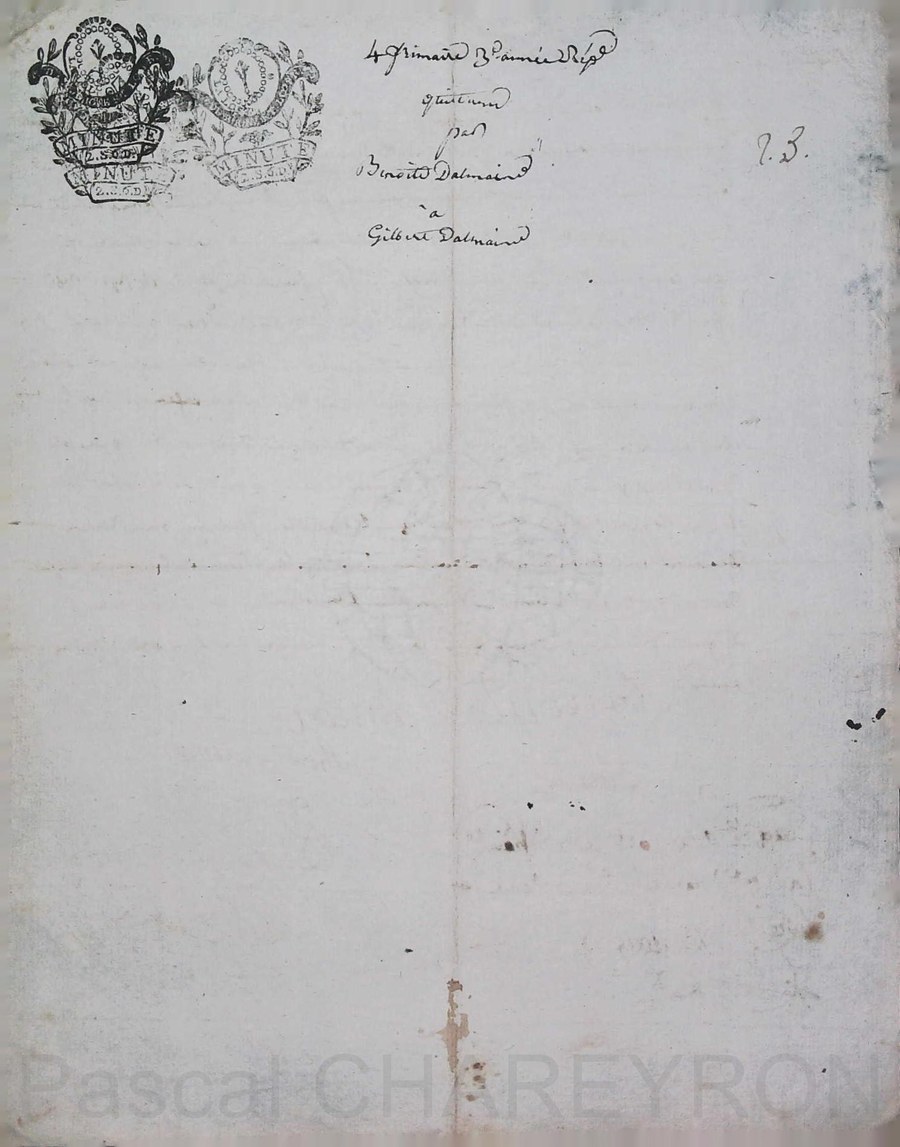 MINUTE
2.S.6.D.
MINUTE
2.S.6.D.
MINUTE
2.S.6.D.
4 frimaire 3e année Rép.
quittance
par
Benoite Dalmaine
à
Gilbert Dalmaine
Pascal CHAREYRON